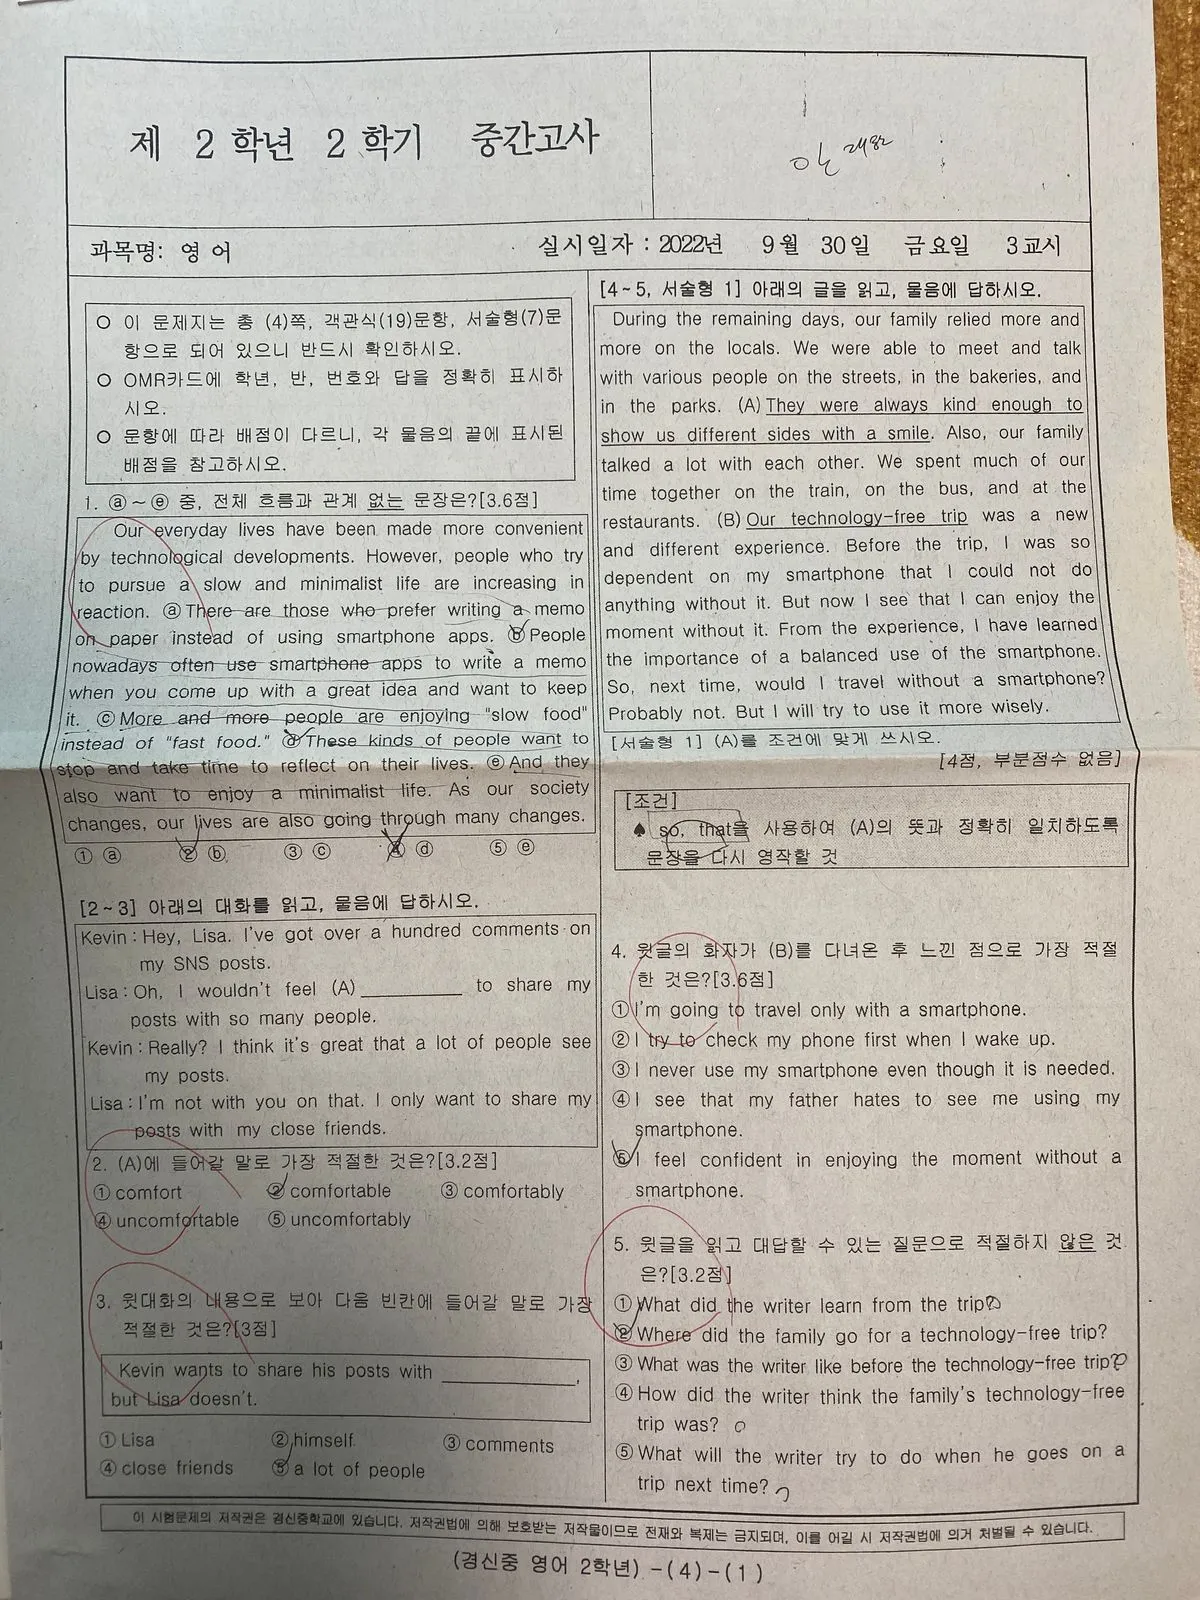 제 2 학년 2 학기 중간고사
과목명: 영 어
실시일자 : 2022년 9월 30일 금요일 3교시
○ 이 문제지는 총 (4)쪽, 객관식(19)문항, 서술형(7)문
항으로 되어 있으니 반드시 확인하시오.
○ OMR카드에 학년, 반, 번호와 답을 정확히 표시하
시오.
○ 문항에 따라 배점이 다르니, 각 물음의 끝에 표시된
배점을 참고하시오.
1. ⓐ~ⓔ 중, 전체 흐름과 관계 없는 문장은?[3.6점]
Our everyday lives have been made more convenient
by technological developments. However, people who try
to pursue a slow and minimalist life are increasing in
reaction. ⓐThere are those who prefer writing a memo
on paper instead of using smartphone apps. ⓑPeople
nowadays often use smartphone apps to write a memo
when you come up with a great idea and want to keep
it. ⓒMore and more people are enjoying "slow food"
instead of "fast food." ⓓThese kinds of people want to
stop and take time to reflect on their lives. ⓔAnd they
also want to enjoy a minimalist life. As our society
changes, our lives are also going through many changes.
① ⓐ ② ⓑ ③ ⓒ ④ ⓓ ⑤ ⓔ
[2~3] 아래의 대화를 읽고, 물음에 답하시오.
Kevin : Hey, Lisa. I've got over a hundred comments on
my SNS posts.
Lisa : Oh, I wouldn't feel (A) __________ to share my
posts with so many people.
Kevin : Really? I think it's great that a lot of people see
my posts.
Lisa : I'm not with you on that. I only want to share my
posts with my close friends.
2. (A)에 들어갈 말로 가장 적절한 것은?[3.2점]
① comfort ② comfortable ③ comfortably
④ uncomfortable ⑤ uncomfortably
3. 윗대화의 내용으로 보아 다음 빈칸에 들어갈 말로 가장
적절한 것은?[3점]
Kevin wants to share his posts with ______________,
but Lisa doesn't.
① Lisa ② himself ③ comments
④ close friends ⑤ a lot of people
[4~5, 서술형 1] 아래의 글을 읽고, 물음에 답하시오.
During the remaining days, our family relied more and
more on the locals. We were able to meet and talk
with various people on the streets, in the bakeries, and
in the parks. (A) They were always kind enough to
show us different sides with a smile. Also, our family
talked a lot with each other. We spent much of our
time together on the train, on the bus, and at the
restaurants. (B) Our technology-free trip was a new
and different experience. Before the trip, I was so
dependent on my smartphone that I could not do
anything without it. But now I see that I can enjoy the
moment without it. From the experience, I have learned
the importance of a balanced use of the smartphone.
So, next time, would I travel without a smartphone?
Probably not. But I will try to use it more wisely.
[서술형 1] (A)를 조건에 맞게 쓰시오.
[4점, 부분점수 없음]
[조건]
♠ so, that을 사용하여 (A)의 뜻과 정확히 일치하도록
문장을 다시 영작할 것
4. 윗글의 화자가 (B)를 다녀온 후 느낀 점으로 가장 적절
한 것은?[3.6점]
① I'm going to travel only with a smartphone.
② I try to check my phone first when I wake up.
③ I never use my smartphone even though it is needed.
④ I see that my father hates to see me using my
smartphone.
⑤ I feel confident in enjoying the moment without a
smartphone.
5. 윗글을 읽고 대답할 수 있는 질문으로 적절하지 않은 것
은?[3.2점]
① What did the writer learn from the trip?
② Where did the family go for a technology-free trip?
③ What was the writer like before the technology-free trip?
④ How did the writer think the family's technology-free
trip was?
⑤ What will the writer try to do when he goes on a
trip next time?
이 시험문제의 저작권은 경신중학교에 있습니다. 저작권법에 의해 보호받는 저작물이므로 전재와 복제는 금지되며, 이를 어길 시 저작권법에 의거 처벌될 수 있습니다.
(경신중 영어 2학년) -(4)-(1)